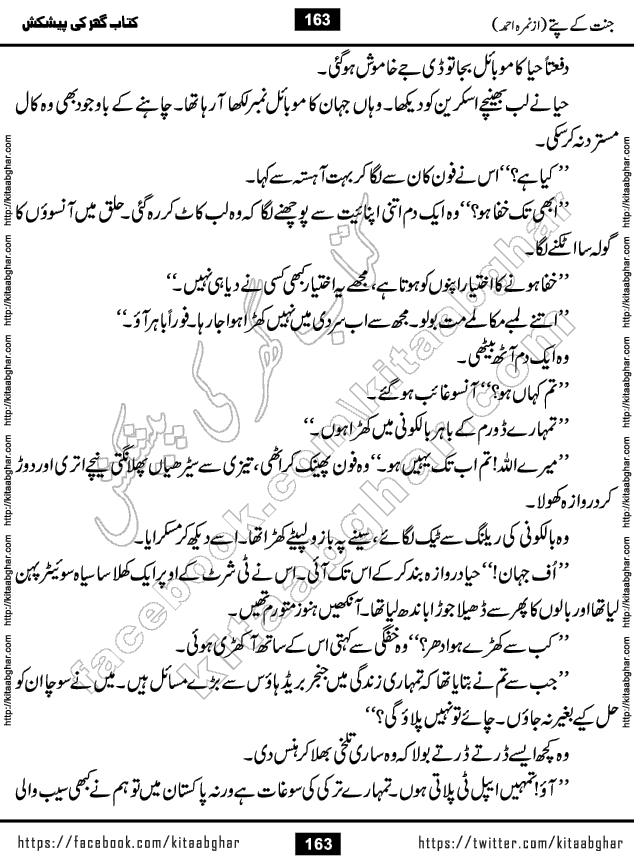 کتاب گھر کی پیشکش 163 جنت کے پتے (از نمرہ احمد)
دفعتاً حیا کا موبائل بجا تو ڈی جے خاموش ہو گئی۔
حیا نے لب بھینچے اسکرین کو دیکھا۔ وہاں جہان کا موبائل نمبر لکھا آ رہا تھا۔ چاہنے کے باوجود بھی وہ کال
مسترد نہ کر سکی۔
’’کیا ہے؟‘‘ اس نے فون کان سے لگا کر بہت آہستہ سے کہا۔
’’ابھی تک خفا ہو؟‘‘ وہ ایک دم اتنی اپنائیت سے پوچھنے لگا کہ وہ لب کاٹ کر رہ گئی۔ حلق میں آنسوؤں کا
گولہ سا اٹکنے لگا۔
’’خفا ہونے کا اختیار اپنوں کو ہوتا ہے، مجھے یہ اختیار کبھی کسی نے دیا ہی نہیں۔‘‘
’’اتنے لمبے مکالمے مت بولو۔ مجھ سے اب سردی میں نہیں کھڑا ہوا جا رہا۔ فوراً باہر آؤ۔‘‘
وہ ایک دم اُٹھ بیٹھی۔
’’تم کہاں ہو؟‘‘ آنسو غائب ہو گئے۔
’’تمہارے ڈورم کے باہر بالکونی میں کھڑا ہوں۔‘‘
’’میرے اللہ! تم اب تک یہیں ہو۔‘‘ وہ فون پھینک کر اٹھی، تیزی سے سیڑھیاں پھلانگتی نیچے اتری اور دوڑ
کر دروازہ کھولا۔
وہ بالکونی کی ریلنگ سے ٹیک لگائے، سینے پہ بازو لپیٹے کھڑا تھا۔ اسے دیکھ کر مسکرایا۔
’’اُف جہان!‘‘ حیا دروازہ بند کر کے اس تک آئی۔ اس نے ٹی شرٹ کے اوپر ایک کھلا سا سیاہ سوئیٹر پہن
لیا تھا اور بالوں کا پھر سے ڈھیلا جوڑا باندھ لیا تھا۔ آنکھیں ہنوز متورم تھیں۔
’’کب سے کھڑے ہو ادھر؟‘‘ وہ خفگی سے کہتی اس کے ساتھ آ کھڑی ہوئی۔
’’جب سے تم نے بتایا تھا کہ تمہاری زندگی میں جنجر بریڈ ہاؤس سے بڑے مسائل ہیں۔ میں نے سوچا ان کو
حل کیے بغیر نہ جاؤں۔ چائے تو نہیں پلاؤ گی؟‘‘
وہ کچھ ایسے ڈرتے ڈرتے بولا کہ وہ ساری تلخی بھلا کر ہنس دی۔
’’آؤ! تمہیں ایپل ٹی پلاتی ہوں۔ تمہارے ترکی کی سوغات ہے ورنہ پاکستان میں تو ہم نے کبھی سیب والی
https://facebook.com/kitaabghar 163 https://twitter.com/kitaabghar
http://kitaabghar.com http://kitaabghar.com http://kitaabghar.com http://kitaabghar.com http://kitaabghar.com http://kitaabghar.com
http://kitaabghar.com http://kitaabghar.com http://kitaabghar.com http://kitaabghar.com http://kitaabghar.com http://kitaabghar.com
کتاب گھر کی پیشکش
facebook.com/kitaabghar
kitaabghar.com